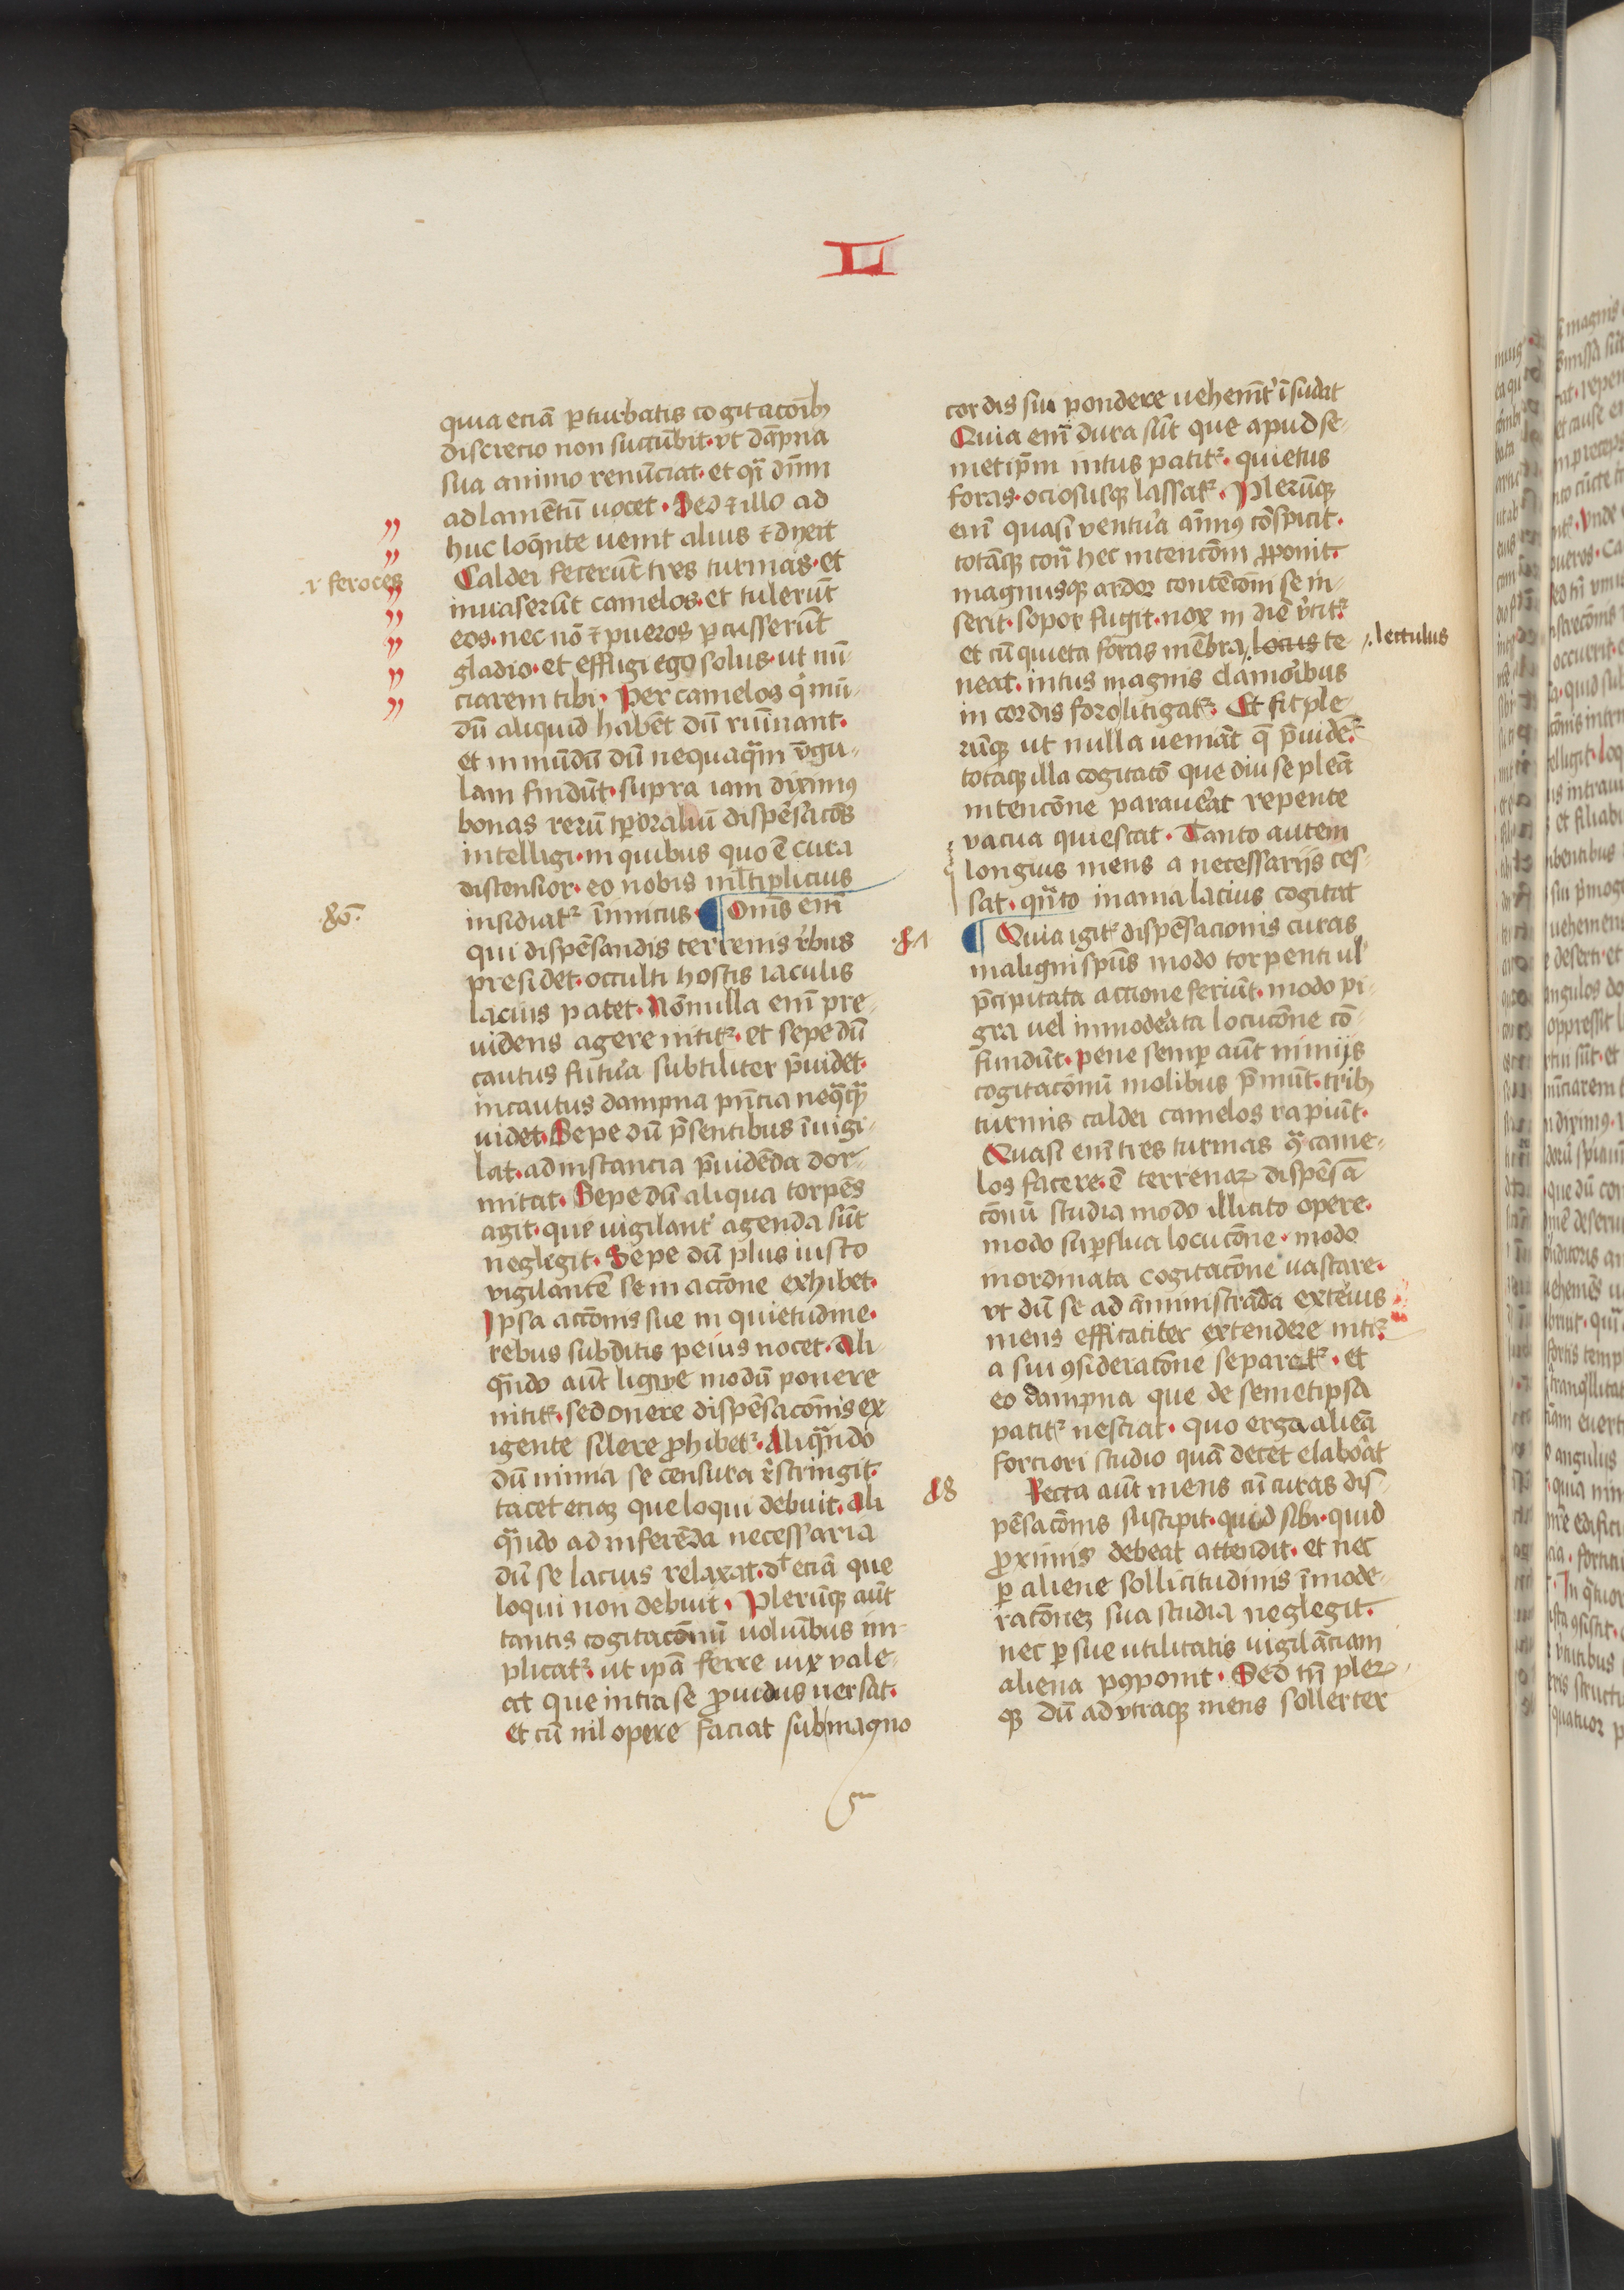 LI
quia eciā ꝑturbatis cogitacōib⁊
discrecio non succūbit · vt dāpna
sua animo renūciat · et qͣi dn̄m
ad lamētū uocet · Sed ⁊ illo ad
huc loq̄nte uenit alius ⁊ dixit
.i. feroces
Caldei fecerūt tres turmas · et
inuaserūt camelos · et tulerūt
eos · nec nō ⁊ pueros ꝑcusserūt
gladio · et effugi ego solus · ut nū-
ciarem tibi · Per camelos qͥ mū-
dū aliquid habēt dū ruminant ·
et inmūdū dū nequaqͣm vngu-
lam findūt · supra iam diximꝰ
bonas rerū tꝑoraliū dispēsacōes
intelligi · in quibus quo ē cura
distensior · eo nobis ml̄tiplicius
insidiatᷣ inimicus · ¶ Om̄is em̄
80.
qui dispēsandis terrenis rebus
presidet · occulti hostis iaculis
lacius patet · Nōnulla em̄ pre-
uidens agere nititᷣ · et sepe dū
cautus futura subtiliter p̄uidet ·
incautus dampna pn̄cia neq̄qͣ
uidet · Sepe dū p̄sentibus inuigi-
lat · ad instancia p̄uidēda dor-
mitat · Sepe dū aliqua torpēs
agit · que uigilant᾿ agenda sūt
neglegit · Sepe dū plus iusto
vigilantē se in accōne exhibet ·
Ipsa accōnis sue in quietudine ·
rebus subditis peius nocet · Ali-
qn̄do aūt ligwe modū ponere
nititᷣ · sed onere dispēsacōnis ex
igente silere ꝓhibetᷣ · Aliqn̄do
dū nimia se censura rͤstringit ·
tacet eciaꝫ que loqui debuit · Ali
qn̄do ad inferēda necessaria
dū se lacius relaxat · dt̄ eciā que
loqui non debuit · Plerūqꝫ aūt
tantis cogitacōnū uolūibus im-
plicatᷣ · ut ip̄a ferre uix vale-
at que intra se ꝓuidus uersat ·
et cū nil opere faciat sub magno
cordis sui pondere uehemt᾿ īsudat
Quia em̄ dura sūt que apud se-
metip̄m intus patitᷣ · quietus
foras · ociosusqꝫ lassatᷣ · Plerūqꝫ
em̄ quasi ventura aīmꝰ cōspicit ·
totāqꝫ cont᾿ hec intencōm ꝓponit ·
magnusqꝫ ardor contēcōni se in-
serit · sopor fugit · nox in diē v᾿titᷣ
et cū quieta foras mēbra ⸝. locus te-
⸝. lectulus
neat · intus magnis clamoribus
in cordis foro litigatᷣ · Et fit ple-
rūqꝫ ut nulla ueniāt q̄ p̄uidētᷣ
totaqꝫ illa cogitatō que diu se pleā
intencōne parauerat repente
vacua quiescat · Tanto autem
longius mens a necessarijs ces-
sat · qn̄to inania lacius cogitat
81
¶ Quia igitᷣ dispēsacionis curas
maligni spūs modo torpenti ul᾿
p̄cipitata accione feriūt · modo pi-
gra uel inmoderata locucōne cō-
fundūt · pene semꝑ aūt nimijs
cogitacōnū molibus p̄mūt · trib⁊
turmis caldei camelos rapiūt ·
Quasi em̄ tres turmas qͣ came-
los facere · ē terrenaꝝ dispēsa
cōnū studia modo illicito opere ·
modo suꝑflua locucōne · modo
inordinata cogitacōne uastare ·
vt dū se ad āministrāda exterius
mens efficaciter extendere nititᷣ
a sui ꝯsideracōne separetᷣ · et
eo dampna que de semetipsa
patitᷣ nesciat · quo erga aliena
forciori studio quā decet elaborat
Recta aūt mens cū curas dis-
pēsacōnis suscipit · quid sibi · quid
ꝓximis debeat attendit · et nec
ꝑ aliene sollicitudinis īmode-
racōneꝫ sua studia neglegit ·
nec ꝑ sue utilitatis uigilāciam
aliena pꝯponit · Sed tn̄ pleꝝ-
qꝫ dū ad vtraqꝫ mens sollerter